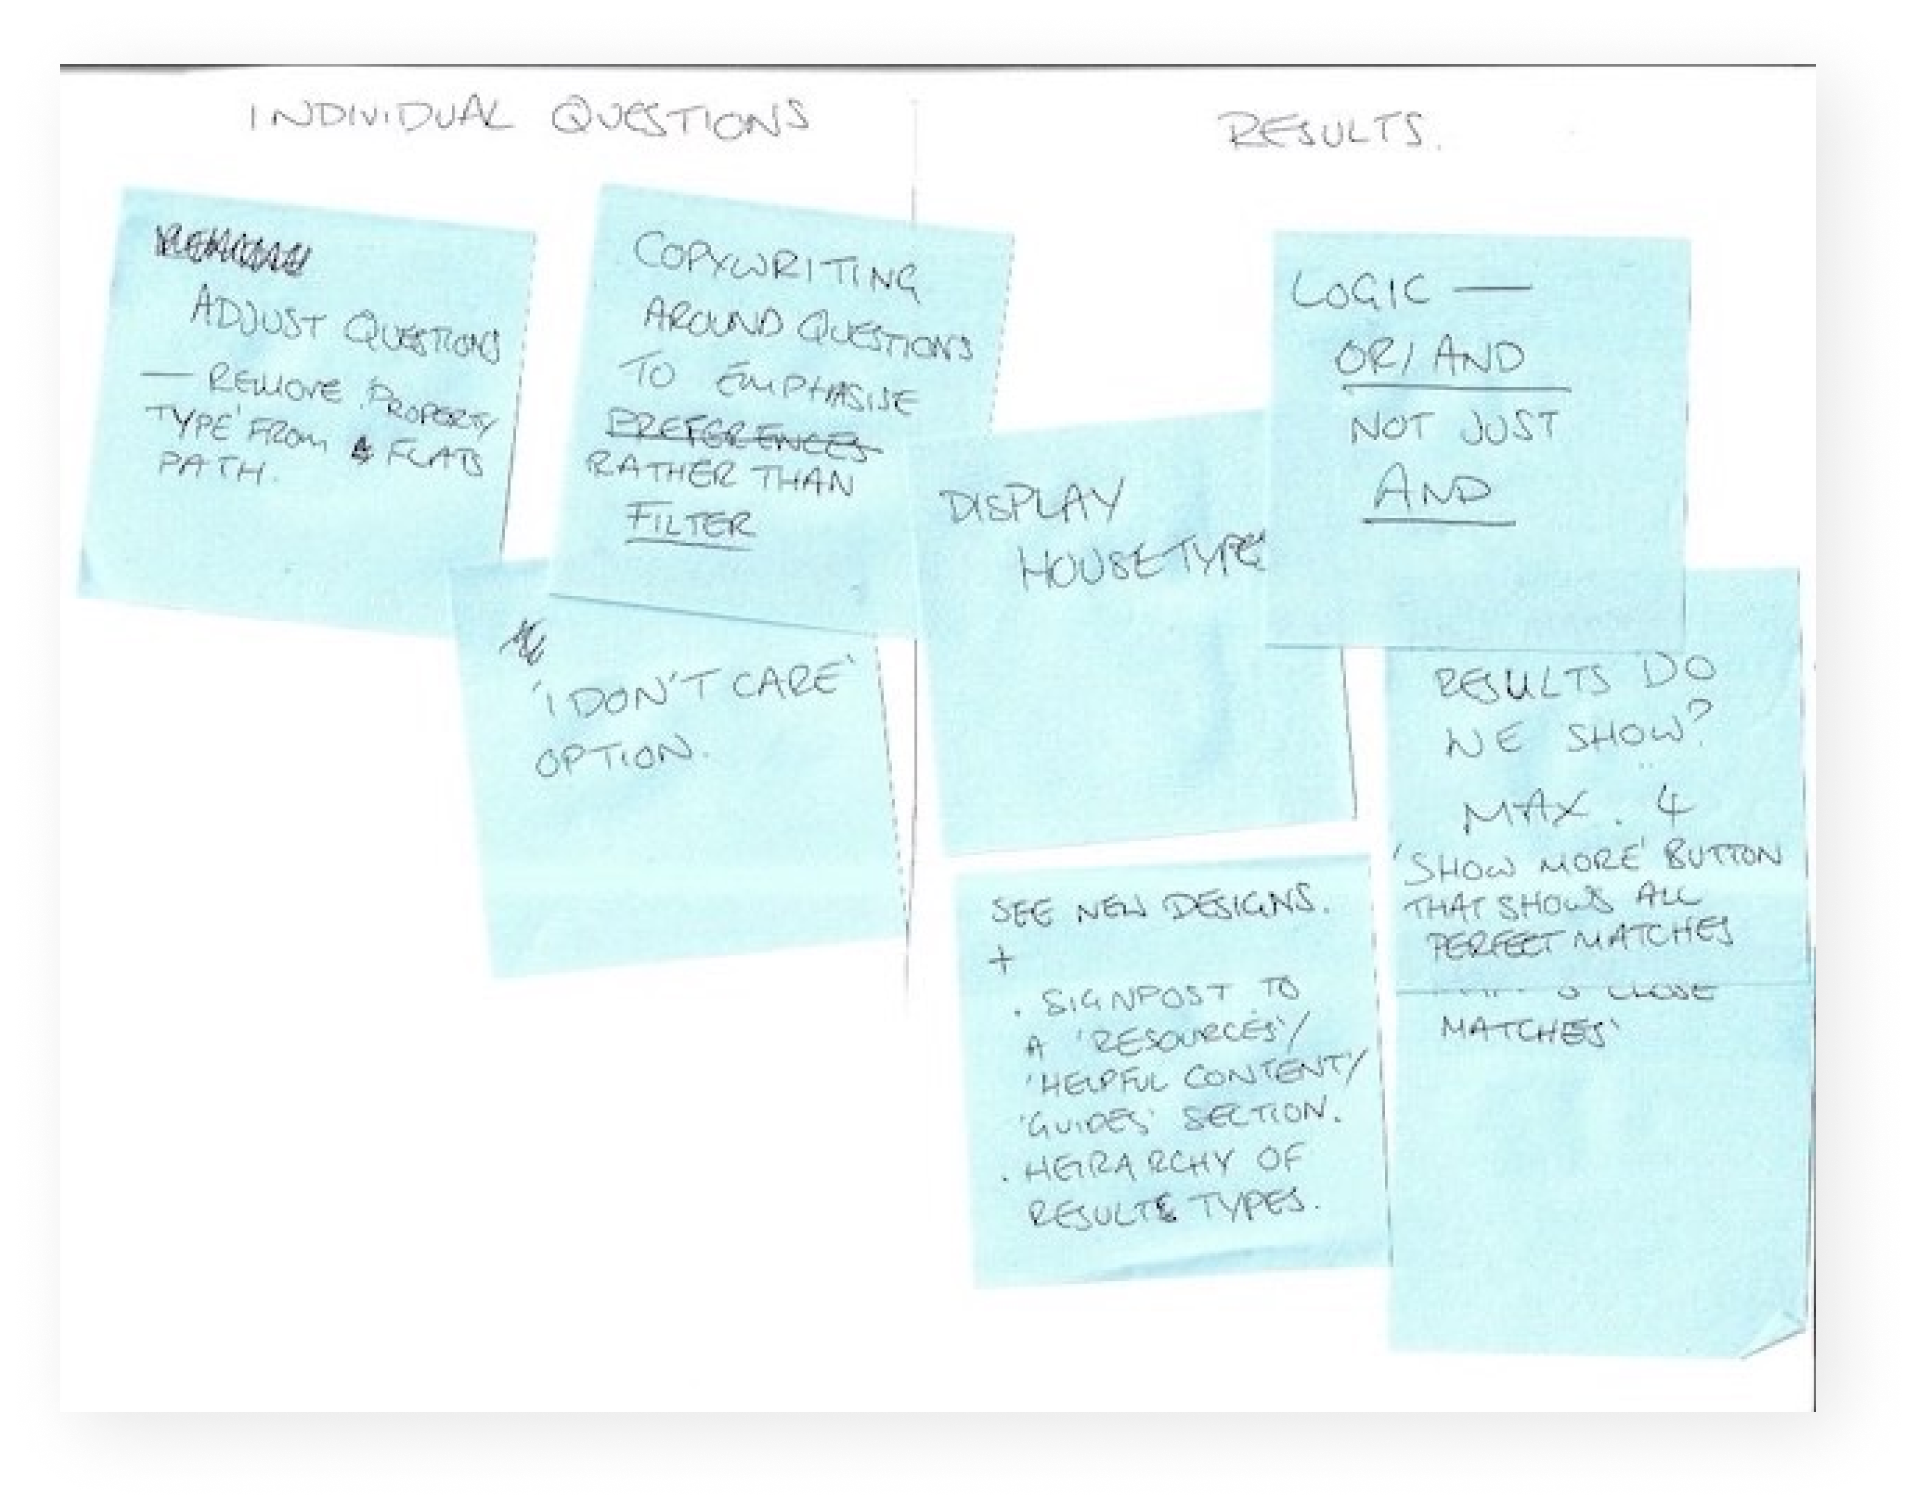 INDIVIDUAL QUESTIONS
ADJUST QUESTIONS
— REMOVE 'PROPERTY
TYPE' FROM FLATS
PATH.
COPYWRITING
AROUND QUESTIONS
TO EMPHASISE
PREFERENCES
RATHER THAN
FILTER
'I DON'T CARE'
OPTION.
RESULTS.
LOGIC —
OR/AND
NOT JUST
AND
DISPLAY
HOUSETYPE
RESULTS DO
WE SHOW?
MAX. 4
'SHOW MORE' BUTTON
THAT SHOWS ALL
PERFECT MATCHES
CLOSE
MATCHES'
SEE NEW DESIGNS.
+
. SIGNPOST TO
A 'RESOURCES'/
'HELPFUL CONTENT/
'GUIDES' SECTION.
. HEIRARCHY OF
RESULTS TYPES.